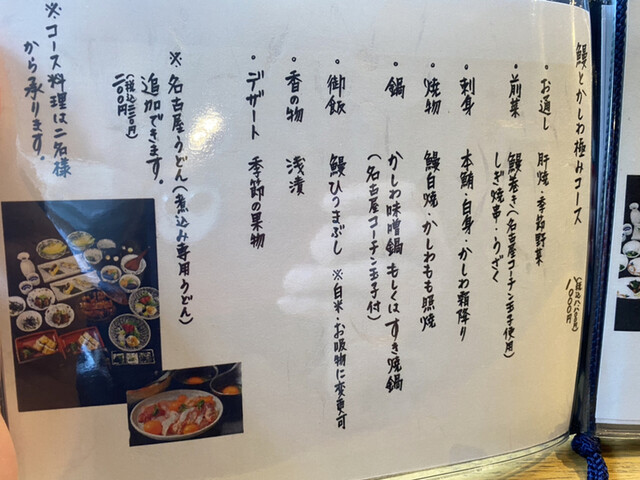 鰻とかしわ極みコース
・お通し 肝焼・季節野菜
・前菜 鰻巻き(名古屋コーチン玉子使用)
しぎ焼串・うざく
・刺身 本鮪・白身・かしわ霜降り
・焼物 鰻白焼・かしわもも照焼
・鍋 かしわ味噌鍋 もしくは すき焼鍋
(名古屋コーチン玉子付)
・御飯 鰻ひつまぶし ※白米・お吸物に変更可
・香の物 浅漬
・デザート 季節の果物
※名古屋うどん(煮込み専用うどん)
追加できます。
二〇〇円
(税込二二〇円)
※コース料理は二名様
から承ります。